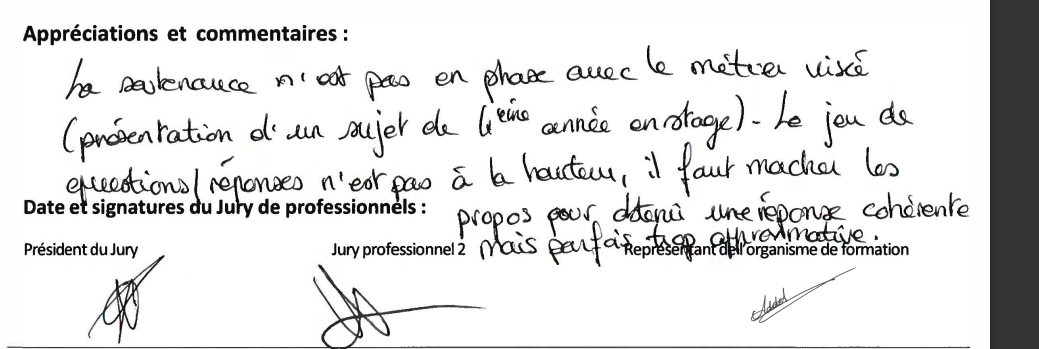 Appréciations et commentaires :
La soutenance n'est pas en phase avec le métier visé
(présentation d'un sujet de 4ème année en stage). Le jeu de
questions/réponses n'est pas à la hauteur, il faut macher les
propos pour obtenir une réponse cohérente
mais parfois trop approximative.
Date et signatures du Jury de professionnels :
Président du Jury Jury professionnel 2 Représentant de l'organisme de formation